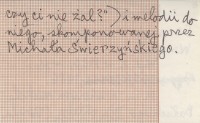 czy ci nie żal?") i melodii do
niego, skomponowanej przez
Michała Świerzyńskiego.